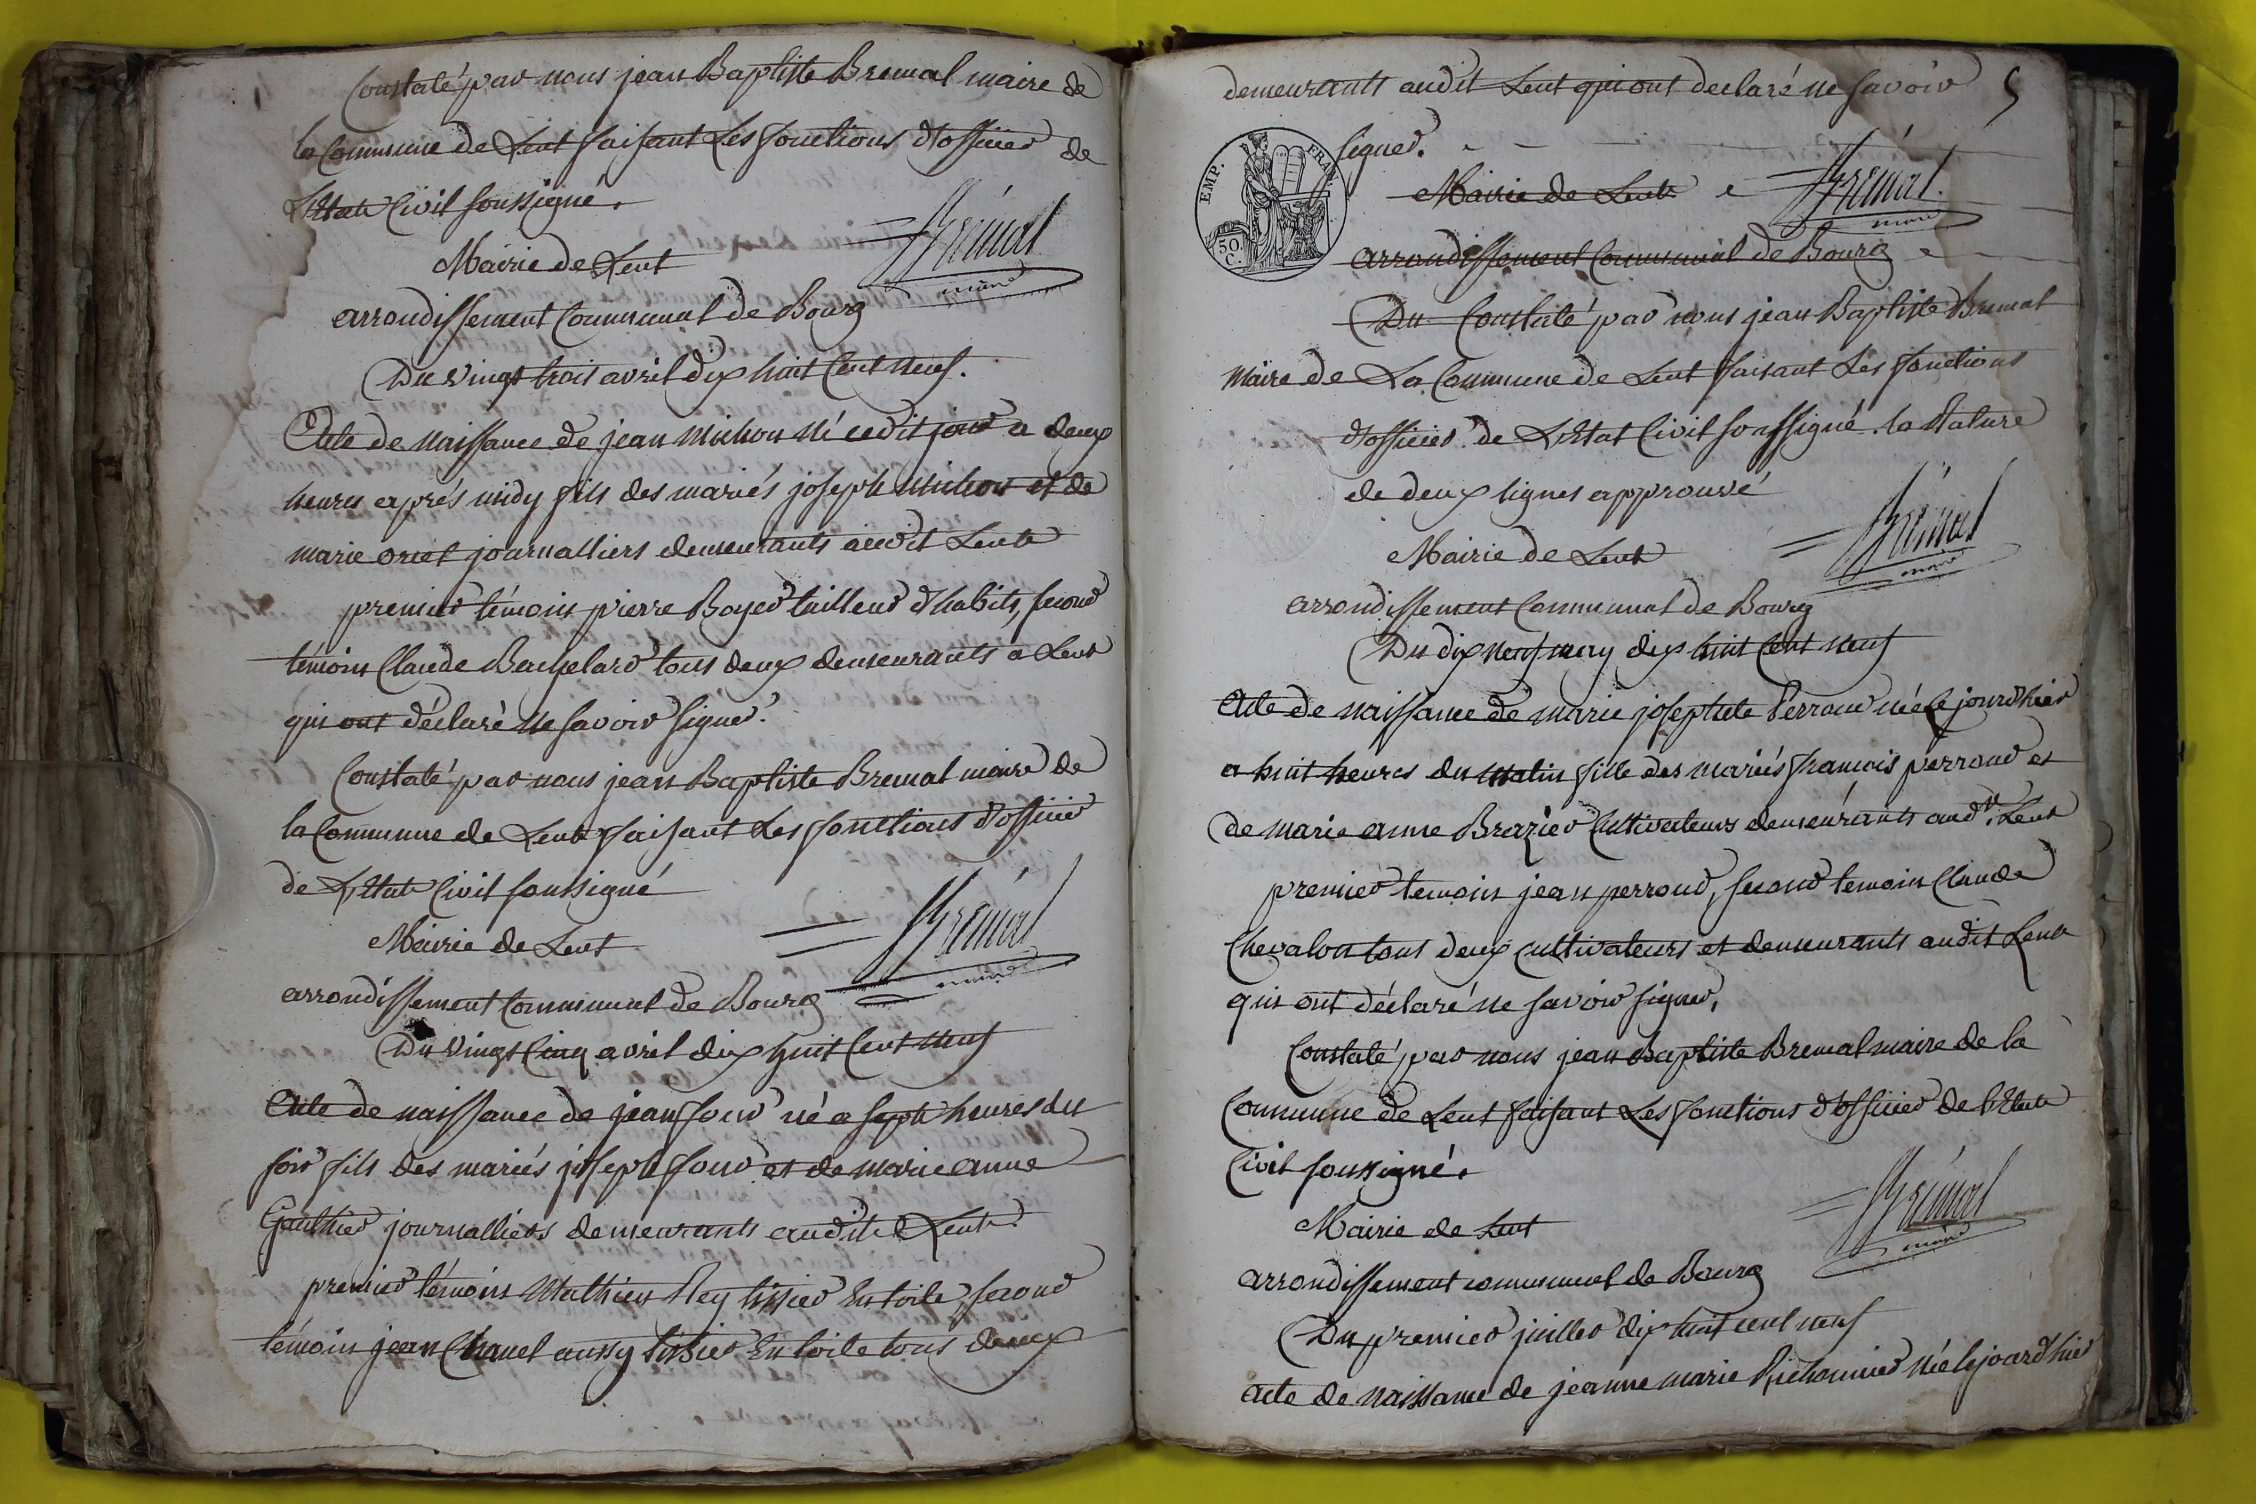 Constaté par nous jean Baptiste Bremal maire de
la Commune de Lent faisant Les fonctions d'officier de
L'Etat Civil soussigné.
Mairie de Lent
Brémal
maire
arrondissement Communal de Bourg
Du vingt trois avril dix huit Cent neuf.
Acte de naissance de jean Michon né cedit jour a deux
heures aprés midy fils des mariés joseph Michon et de
marie oriel journalliers demeurants audit Lent
premier témoin pierre Boyer tailleur d'habits, second
témoin Claude Bachelard tous deux demeurants a Lent
qui ont déclaré ne savoir signer.
Constaté par nous jean Baptiste Bremal maire de
la Commune de Lent faisant Les fonctions d'officier
de L'Etat Civil soussigné
Mairie de Lent
Brémal
maire
arrondissement Communal de Bourg
Du vingt Cinq avril dix huit Cent neuf
Acte de naissance de jean né a sept heures du
soir fils des mariés joseph et de marie anne
Gauthier journalliers demeurants audit Lent.
premier témoin Mathieu Rey tissier En toile, second
témoin jean Chanel aussy tissier En toile tous deux
demeurants audit Lent qui ont declaré ne savoir
5
signer.
EMP. FRAN.
50.
C.
Mairie de Lent
Brémal
maire
arrondissement Communal de Bourg
Du Constaté par nous jean Baptiste Bremal
Maire de La Commune de Lent faisant Les fonctions
d'officier de L'Etat Civil soussigné. la Rature
de deux lignes approuvé
Mairie de Lent
Brémal
maire
arrondissement Communal de Bourg
Du dix neuf may dix huit Cent neuf
Acte de naissance de marie josephte Perroud née Le jourd'hier
a huit heures du matin fille des mariés francois perroud et
de marie anne Brazier Cultivateurs demeurants aud.t Lent
premier temoin jean perroud, second temoin Claude
Chevalon tous deux cultivateurs et demeurants audit Lent
qui ont déclaré ne savoir signer,
Constaté par nous jean Baptiste Bremal maire de la
Commune de Lent faisant Les fonctions d'officier de l'Etat
Civil soussigné.
Mairie de Lent
Brémal
maire
arrondissement communal de Bourg
Du premier juillet dix huit cent neuf
acte de naissance de jeanne marie née le jourd'hier